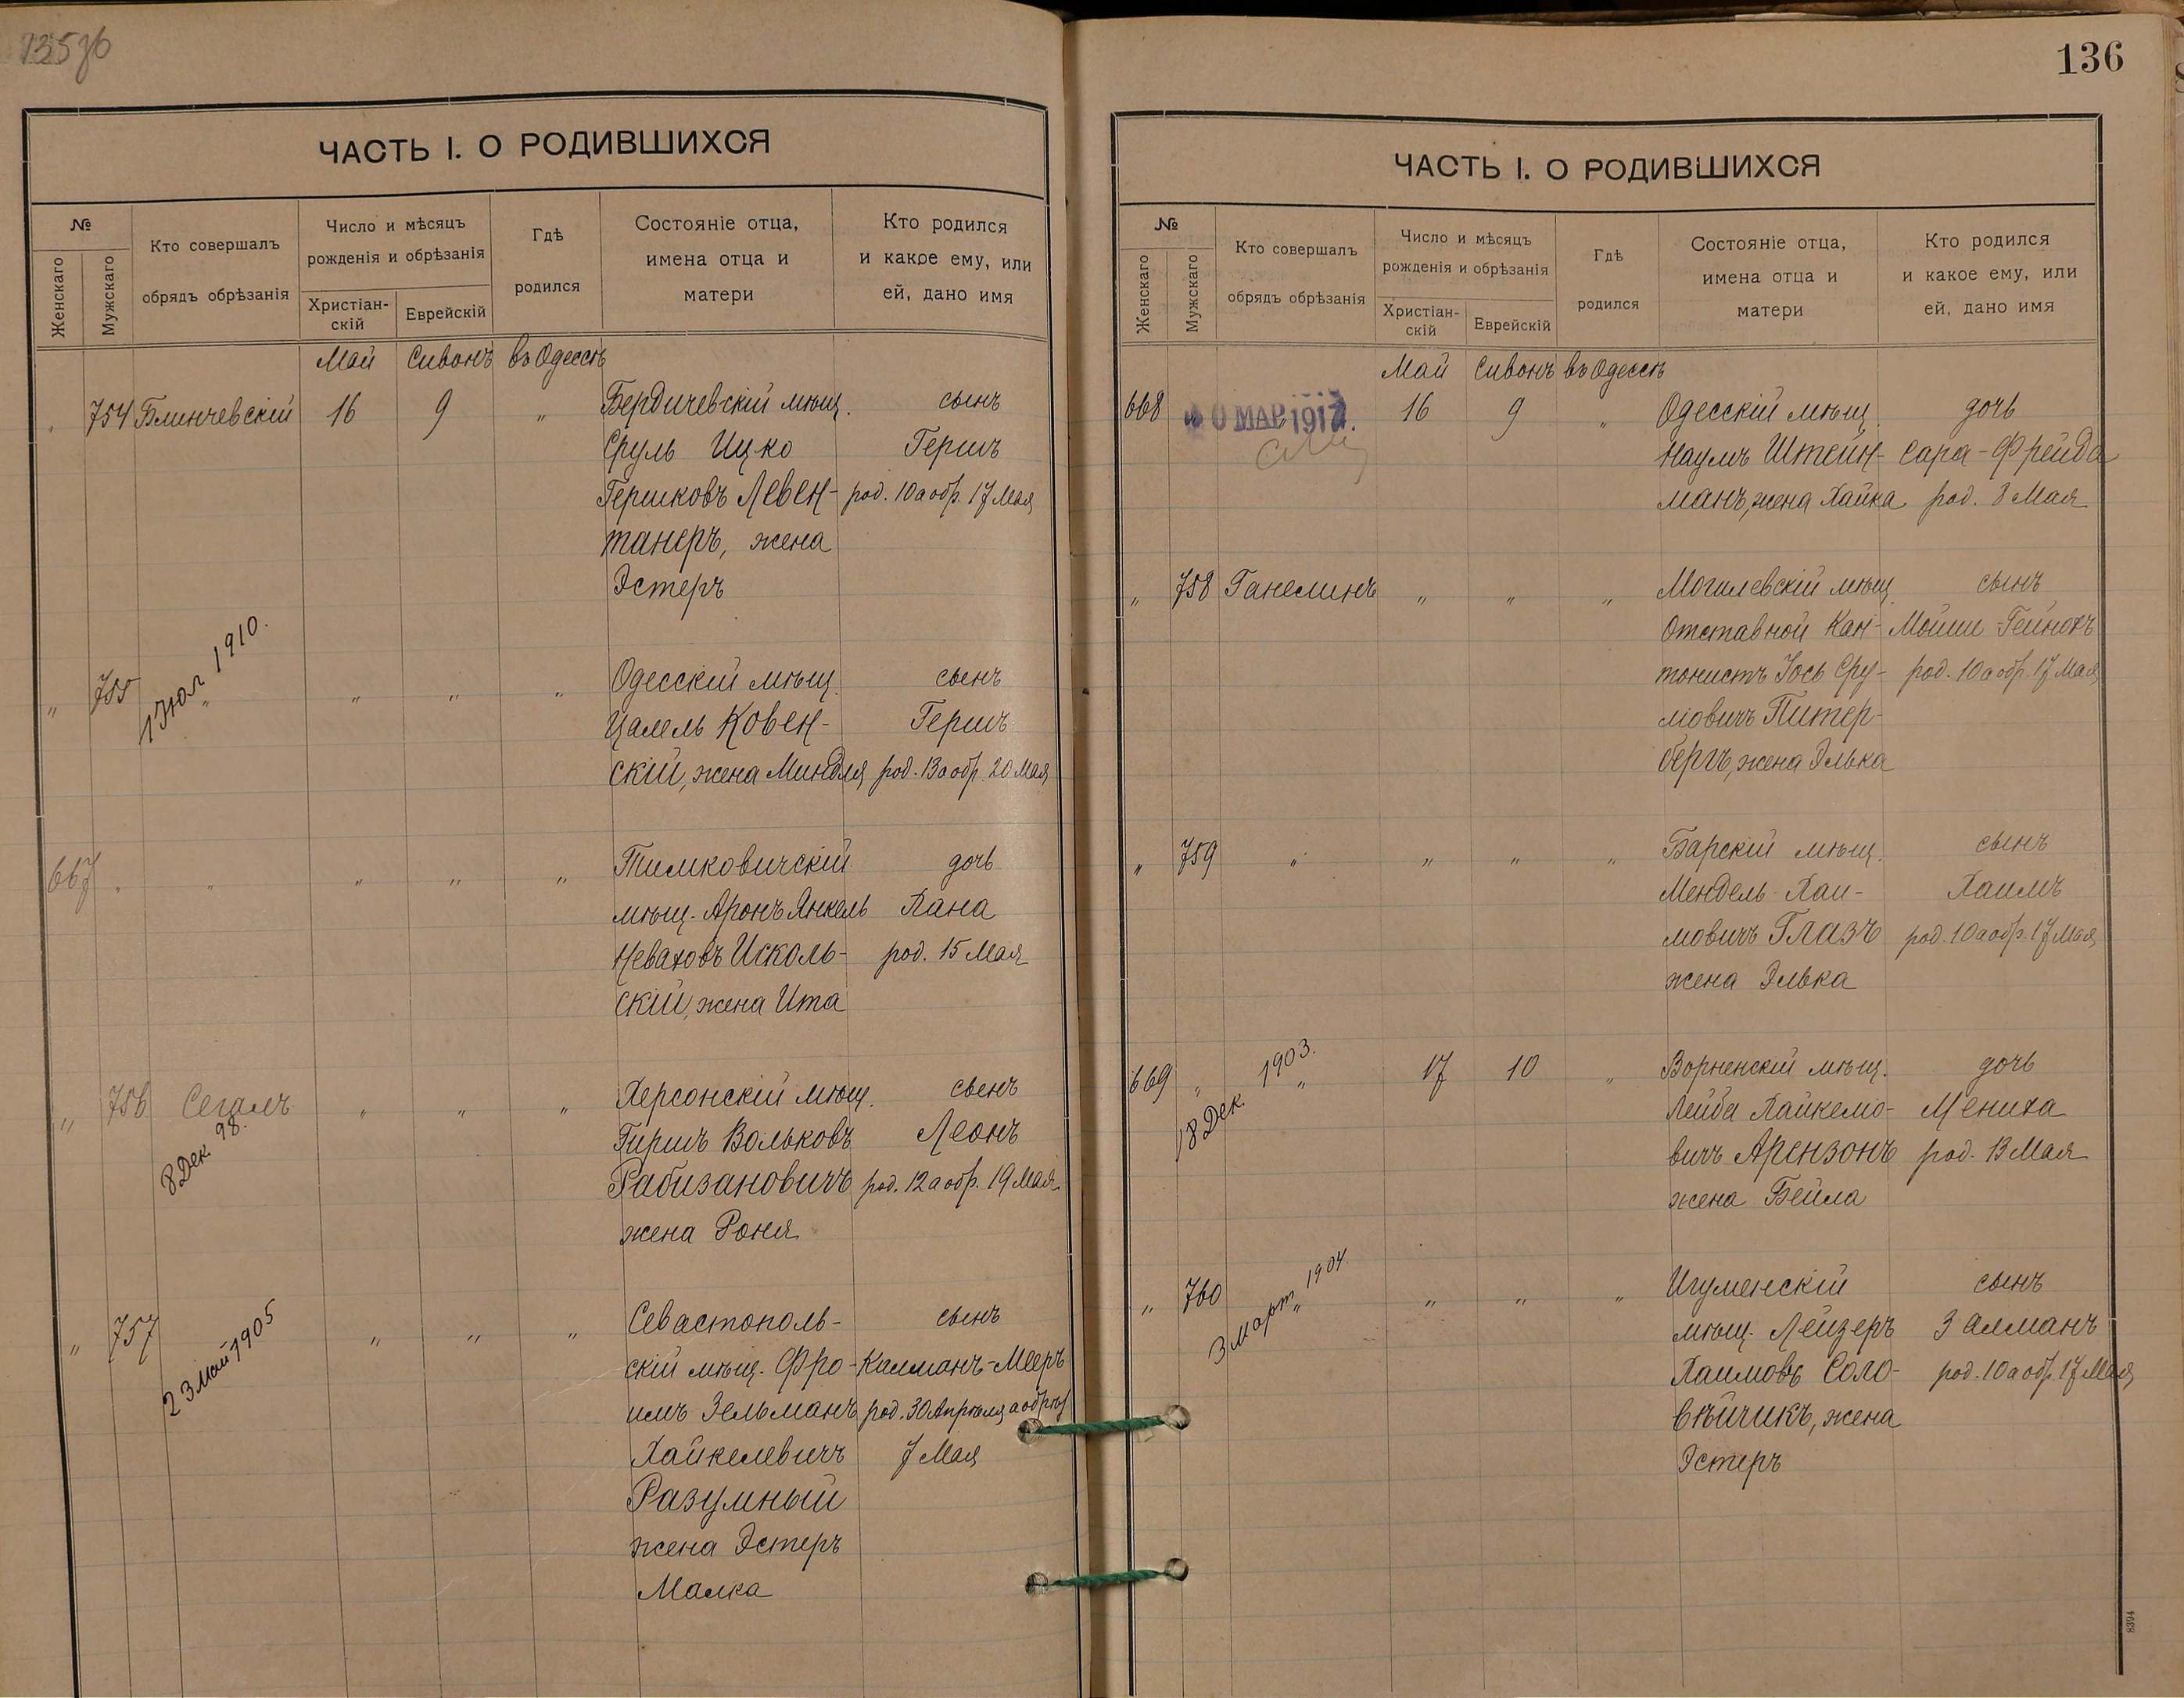 135об
ЧАСТЬ I. О РОДИВШИХСЯ
№
Женскаго
Мужскаго
Кто совершалъ
обрядъ обрѣзанія
Число и мѣсяцъ
рожденія и обрѣзанія
Христіан-
скій
Еврейскій
Гдѣ
родился
Состояніе отца,
имена отца и
матери
Кто родился
и какое ему, или
ей, дано имя
Май Сивонъ въ Одессѣ
754 Блинчевскій 16 9 " Бердичевскій мѣщ. сынъ
Сруль Ицко Гершъ
Гершковъ Левен- род. 10 а обр. 17 Мая
танеръ, жена
Эстеръ
" 755 " " " " Одесскій мѣщ. сынъ
1 Июл 1910.
Цалель Ковен- Гершъ
скій, жена Миндля род. 13 а обр. 20 Мая
667 " " " " " Тимковичскій дочь
мѣщ. Аронъ Янкель Хана
Неваховъ Исколь- род. 15 Мая
скій, жена Ита
" 756 Сегалъ " " " Херсонскій мѣщ. сынъ
8 Дек. 98.
Гиршъ Вольковъ Леонъ
Рабизановичъ род. 12 а обр. 19 Мая
жена Роня
" 757 " " " Севастополь- сынъ
23 Май 1905
скій мѣщ. Фро- Калманъ-Мееръ
имъ Зельманъ род. 30 Апрѣля а обрѣз
Хайкелевичъ 7 Мая
Разумный
жена Эстеръ
Малка
136
ЧАСТЬ I. О РОДИВШИХСЯ
№
Женскаго
Мужскаго
Кто совершалъ
обрядъ обрѣзанія
Число и мѣсяцъ
рожденія и обрѣзанія
Христіан-
скій
Еврейскій
Гдѣ
родился
Состояніе отца,
имена отца и
матери
Кто родился
и какое ему, или
ей, дано имя
Май Сивонъ въ Одессѣ
668 МАР 1917. 16 9 " Одесскій мѣщ. дочь
Наумъ Штейн- Сара-Фрейда
манъ, жена Хайка род. 8 Мая
" 758 Ганелинъ " " " Могилевскій мѣщ. сынъ
Отставной Кан- Мойше-Гейнохъ
тонистъ Іось Сру- род. 10 а обр. 17 Мая
ліовичъ Питер-
бергъ, жена Элька
" 759 " " " " Барскій мѣщ. сынъ
Мендель Хаи- Хаимъ
мовичъ Глазъ род. 10 а обр. 17 Мая
жена Элька
669 " " 17 10 " Ворненскій мѣщ. дочь
18 Дек. 1903.
Лейба Хайкело- Мениха
вичъ Арензонъ род. 13 Мая
жена Бейла
" 760 " " " " Игуменскій сынъ
3 март 1904.
мѣщ. Лейзеръ Залманъ
Хаимовъ Соло- род. 10 а обр. 17 Мая
вѣйчикъ, жена
Эстеръ
8394